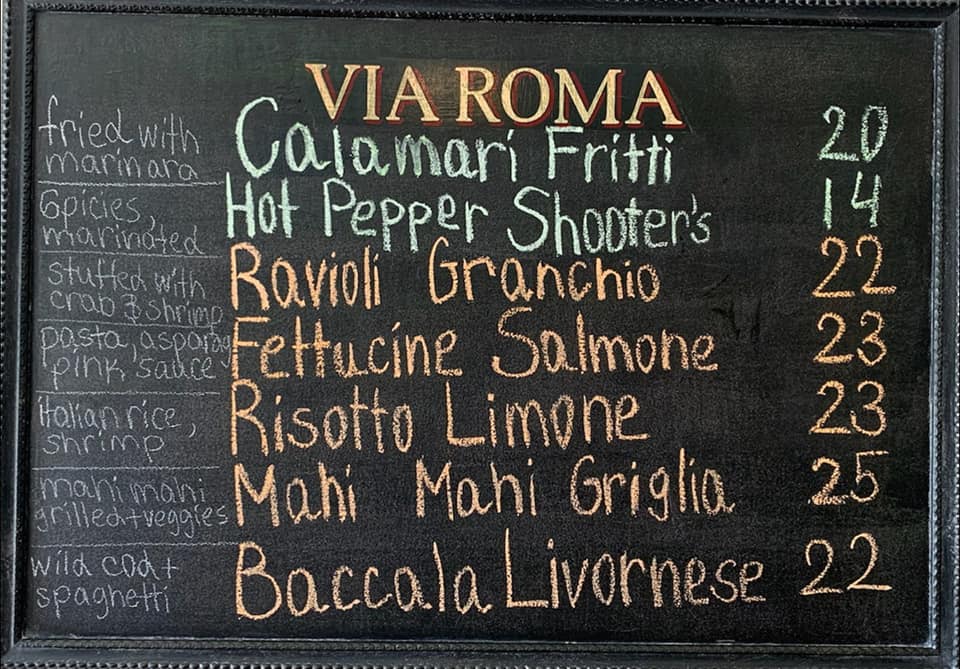 VIA ROMA
fried with
marinara
Calamari Fritti 20
6picies,
marinated
Hot Pepper Shooter's 14
stuffed with
crab & shrimp
Ravioli Granchio 22
pasta, asparag
pink sauce
Fettucine Salmone 23
italian rice,
shrimp
Risotto Limone 23
mahi mahi
grilled+veggies
Mahi Mahi Griglia 25
wild cod+
spaghetti
Baccala Livornese 22